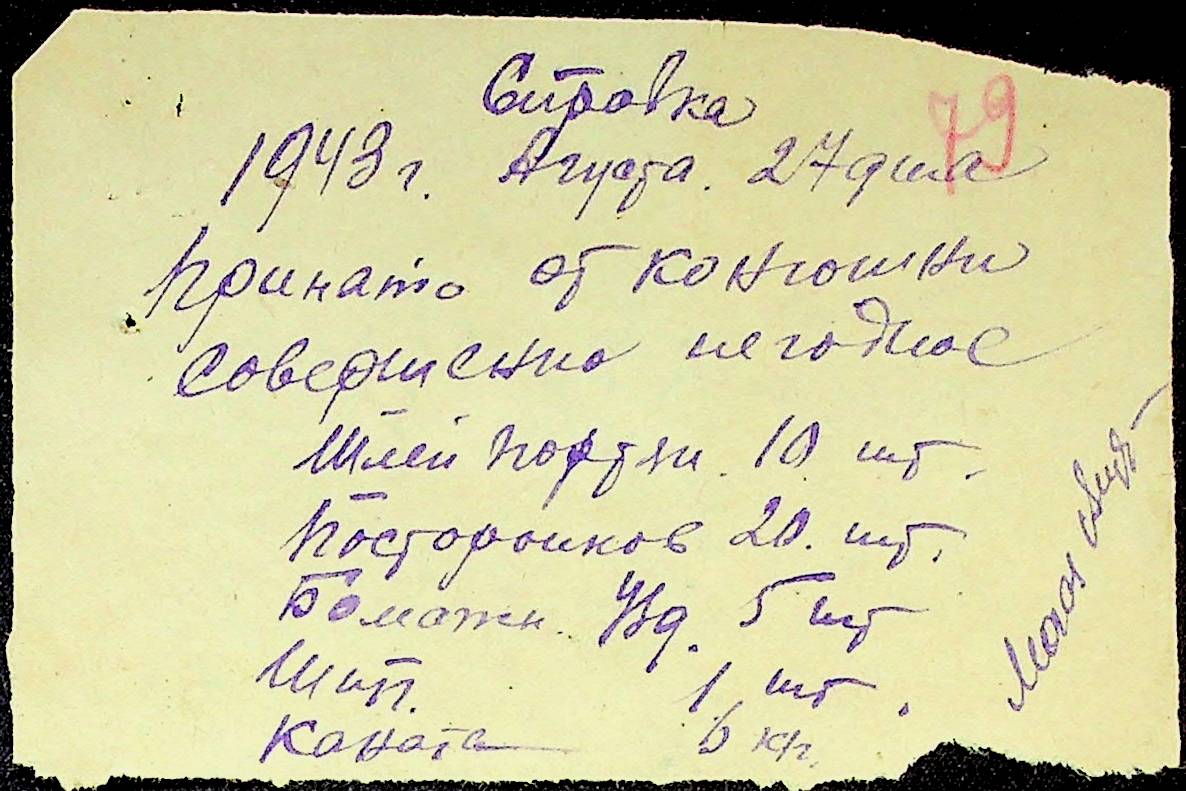 Справка
79
1943 г. Августа. 27 дня
Принято от конюшни
совершенно негодное
Шлей портян. 10 шт.
Посторонков 20. шт.
Бомажн. Узд. 5 шт
Шит. 1 шт.
Каната 6 кг.